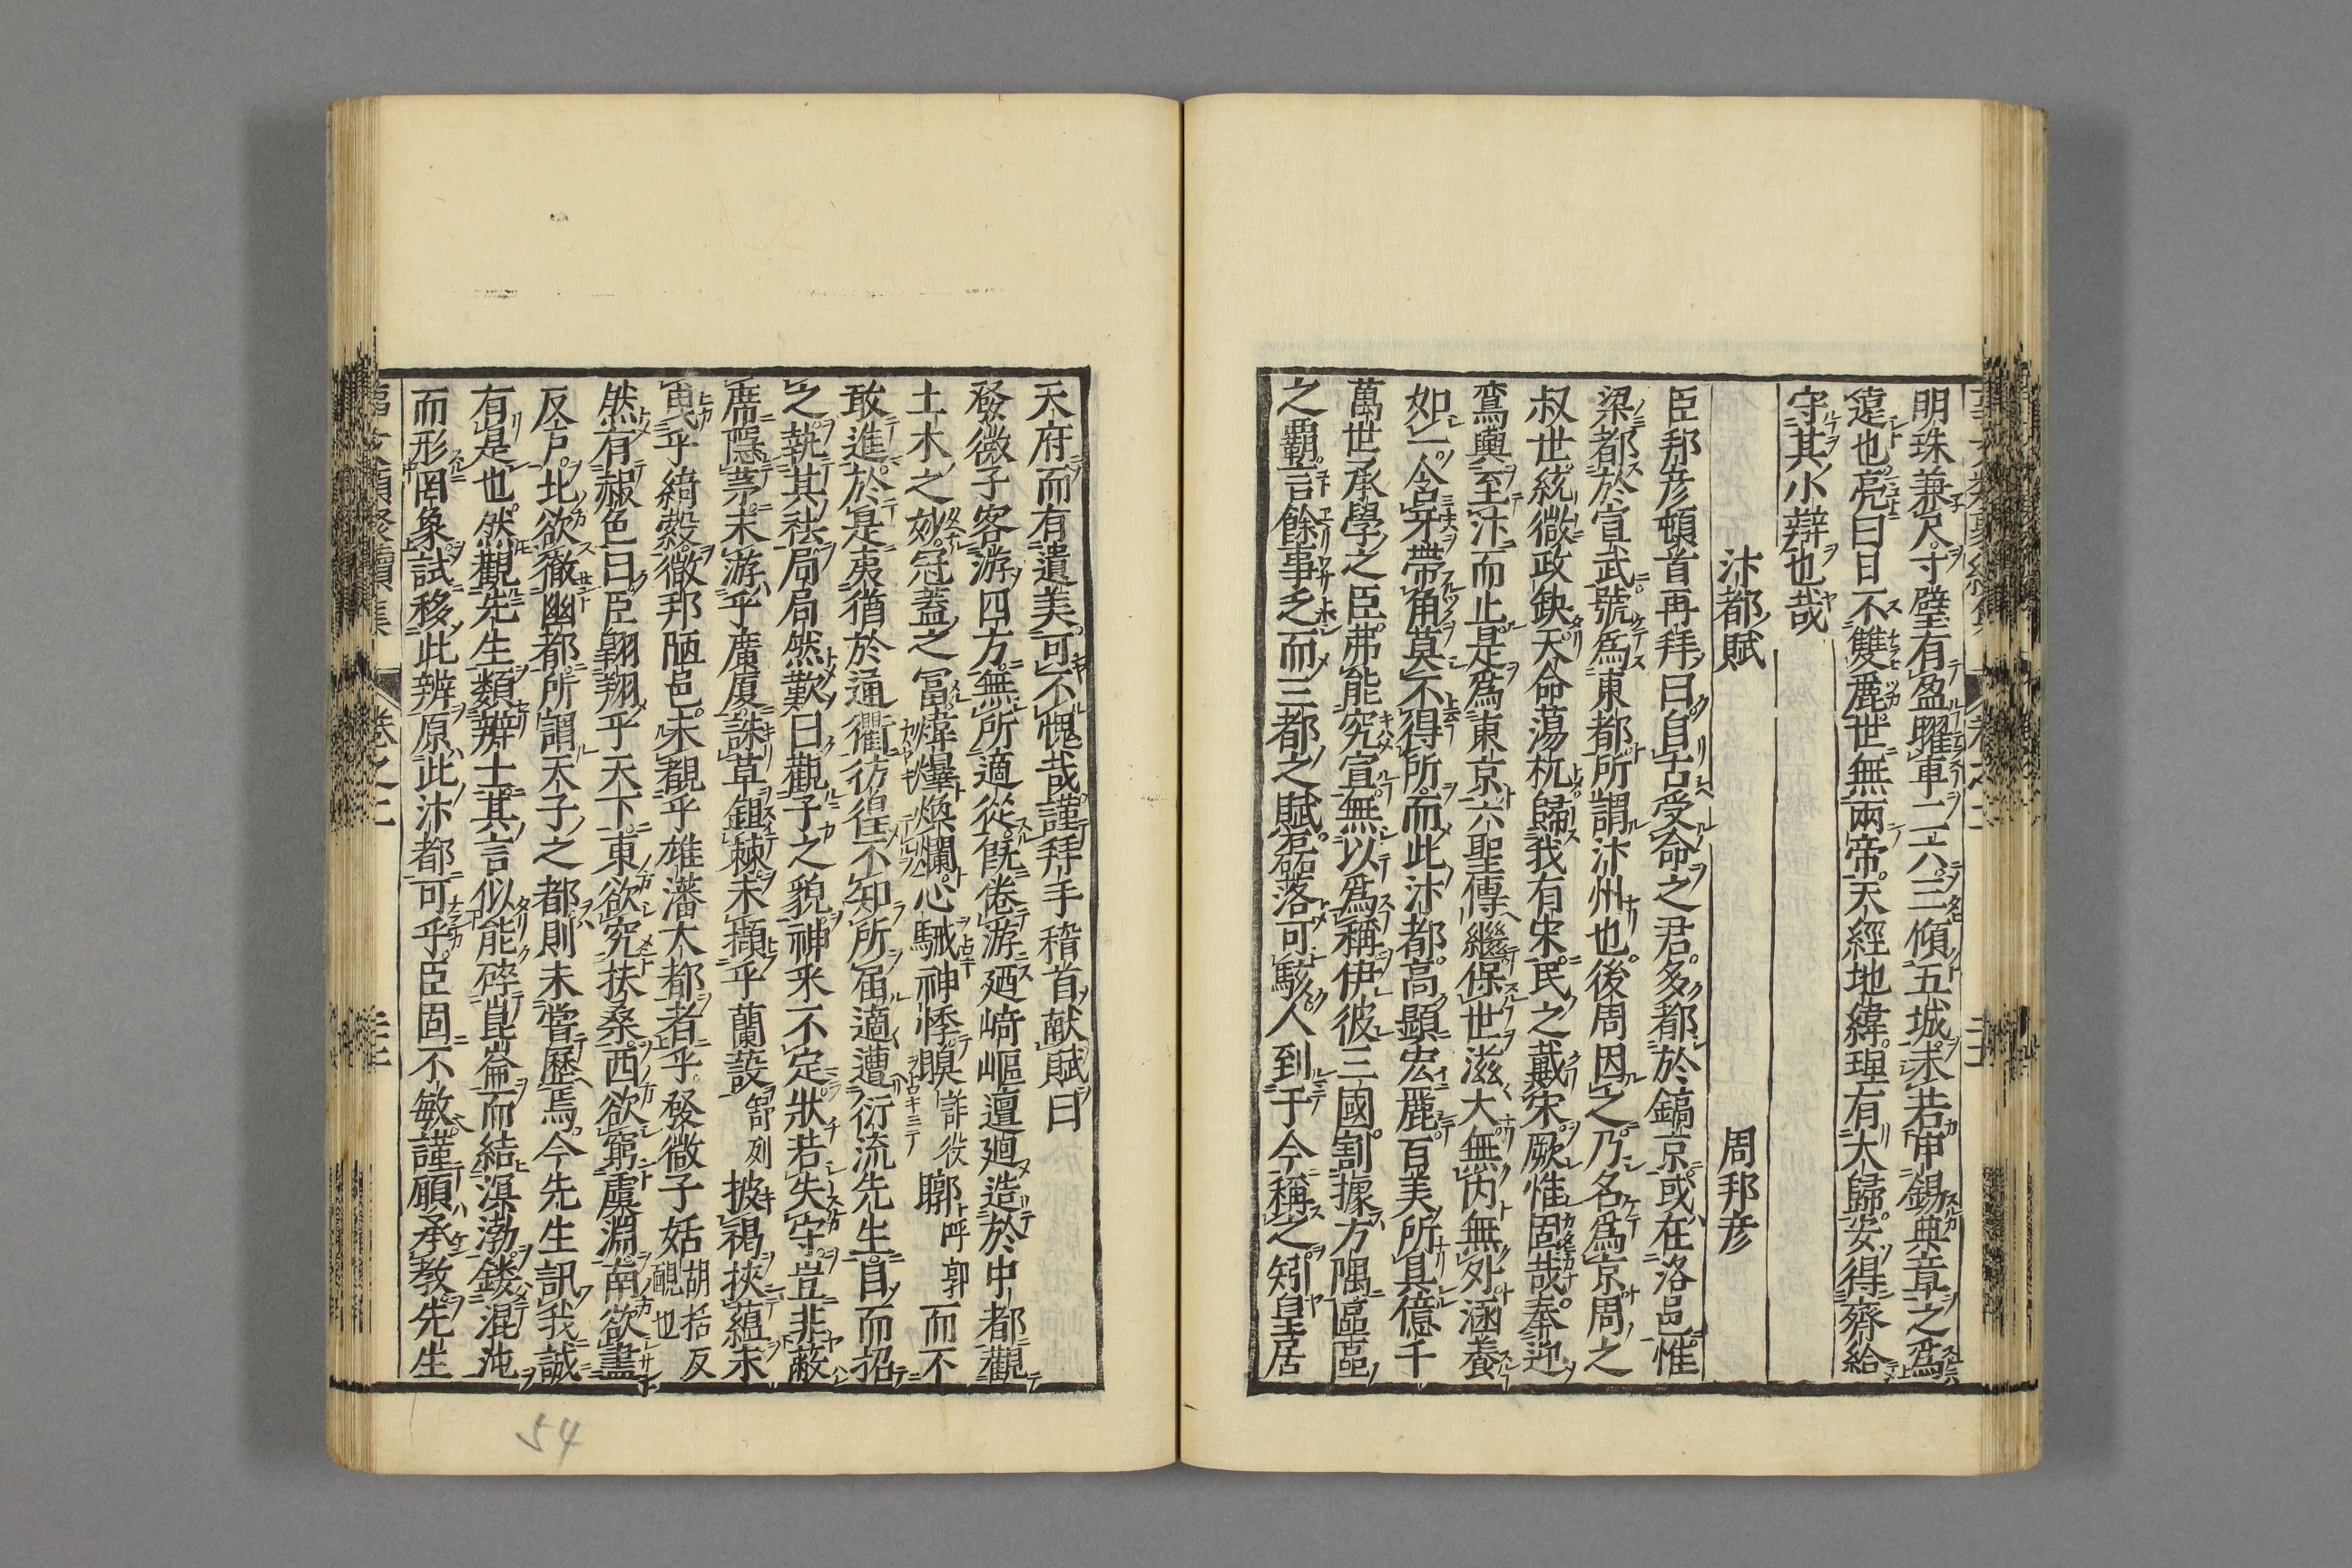 明珠兼尺寸璧有盈曜車二六三傾五城未若申錫典章之爲
遠也亮曰日不雙麗世無兩帝天經地緯理有大歸安得齊給
守其小辯也哉
汴都賦 周邦彦
臣邦彦頓首再拜曰自古受命之君多都於鎬京或在洛邑惟
梁都於宣武號爲東都所謂汴州也後周因之乃名爲京周之
叔世統微政缺天命蕩杌歸我有宋民之戴宋厥惟固哉奉迎
鸞輿至汴而止是爲東京六聖傳繼保世滋大無内無外涵養
如一含牙帶角莫不得所而此汴都高顯宏麗百美所具億千
萬世承學之臣弗能究宣無以爲稱伊彼三國割據方隅區區
之霸言餘事乏而三都之賦磊落可駭人到于今稱之矧皇居
天府而有遺美可不愧哉謹拜手稽首献賦曰
發微子客游四方無所適從旣倦游廼崎嶇邅廻造於中都觀
土木之妙冠蓋之冨煒爗煥爛心駴神悸瞁許役䁨呼郭而不
敢進於是夷猶於通衢彷徨不知所届適遭衍流先生目而招
之執其袪局局然歎曰觀子之貌神釆不定狀若失守豈非蔽
席隱茅未游乎廣厦誅草鉏棘未擷乎蘭䓆卻列披褐挾蘊未
曳乎綺縠微邦陋邑未覩乎雄藩大都者乎發微子姡胡括反靦也
然有赧色曰臣翺翔乎天下東欲究扶桑西欲窮虞淵南欲盡
反戸北欲徹幽都所謂天子之都則未嘗歷焉今先生訊我誠
有是也然觀先生類辨士其言似能碎崑崙而結溟渤鏤混沌
而形罔象試移此辨原此汴都可乎臣固不敏謹願承教先生
卷之二